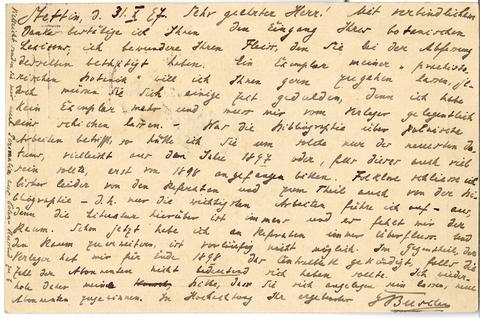 Stettin, d. 31/X 97. Sehr geehrter Herr! Mit verbindlichem
Danke bestätige ich Ihnen den Eingang Ihres botanischen
Lexicons, ich bewundere Ihren Fleiss, den Sie bei der Abfassung
desselben bethätigt haben. Ein Exemplar meiner
Botanik" will ich Ihnen gern zugehen lassen, je-
doch müssen Sie sich einige Zeit gedulden, denn ich habe
kein Exemplar mehr und muss mir vom Verleger gelegentlich
eins schicken lassen. - Was die Bibliographie über polnische
Arbeiten betrifft, so hätte ich Sie um solche nur der neuesten Da-
tums, vielleicht aus dem Jahre 1897 oder, falls dieses auch viel
sein sollte, erst von 1898 angefangen bitten. schliesse ich
bisher leider von den Referaten und zum Theil auch von der Bi-
bliographie - d.h. nur die wichtigsten Arbeiten führe ich auf - aus,
denn die Literatur hierüber ist immens und es fehlt mir der
Raum. Schon jetzt habe ich an Referaten immer Überfluss und
den Raum zu erweitern, ist vorläufig nicht möglich. Im Gegentheil, der
Verleger hat mir für Ende 1898 das Centralblatt gekündigt, falls die
Zahl der Abonnenten nicht bedeutend sich heben sollte. Ich wieder-
hole daher meine Bitte, dass Sie sich angelegen sein lassen, neue
Abonnenten zu gewinnen. In Hochachtung Ihr ergebenster G Buschan